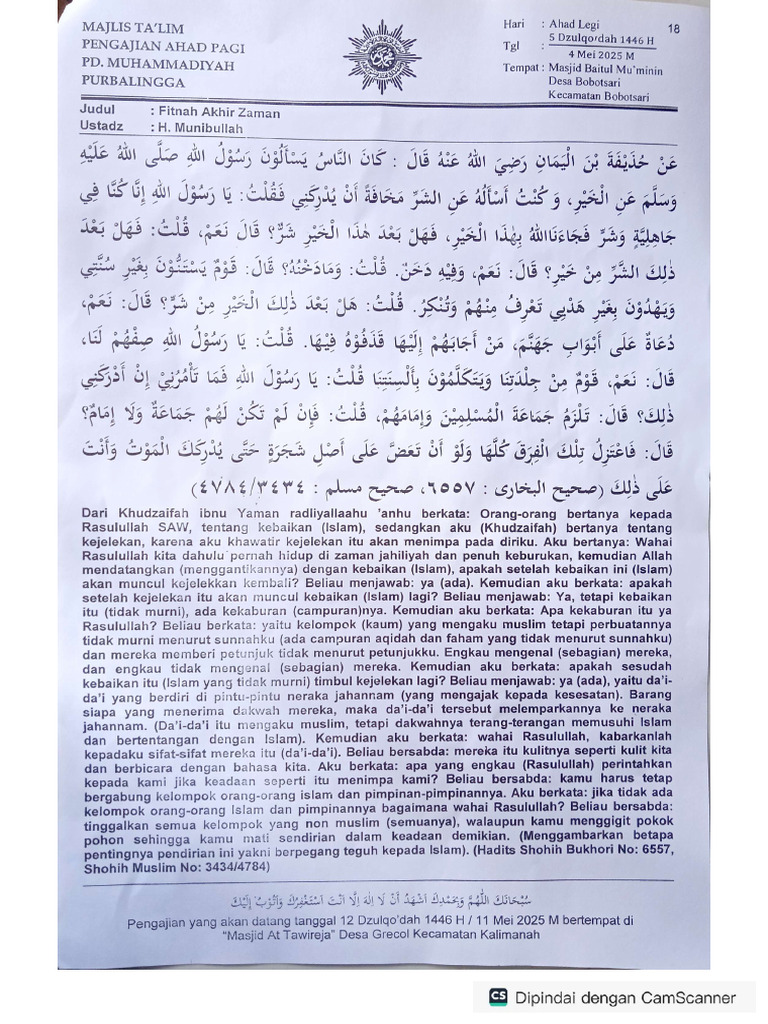 MAJLIS TA'LIM
PENGAJIAN AHAD PAGI
PD. MUHAMMADIYAH
PURBALINGGA
Hari : Ahad Legi
Tgl : 5 Dzulqo'dah 1446 H
4 Mei 2025 M
Tempat : Masjid Baitul Mu'minin
Desa Bobotsari
Kecamatan Bobotsari
18
Judul : Fitnah Akhir Zaman
Ustadz : H. Munibullah
عَنْ حُذَيْفَةَ بْنَ الْيَمَانِ رَضِيَ اللهُ عَنْهُ قَالَ : كَانَ النَّاسُ يَسْأَلُوْنَ رَسُوْلُ اللهِ صَلَّى اللهُ عَلَيْهِ
وَسَلَّمَ عَنِ الْخَيْرِ، وَ كُنْتُ أَسْأَلُهُ عَنِ الشَّرِّ مَخَافَةً أَنْ يُدْرِكَنِي فَقُلْتُ: يَا رَسُوْلَ اللهِ إِنَّا كُنَّا فِي
جَاهِلِيَّةٍ وَشَرٍّ فَجَاءَنَااللهُ بِهٰذَا الْخَيْرِ، فَهَلْ بَعْدَ هٰذَا الْخَيْرِ شَرٌّ؟ قَالَ نَعَمْ، قُلْتُ: فَهَلْ بَعْدَ
ذٰلِكَ الشَّرِّ مِنْ خَيْرٍ؟ قَالَ: نَعَمْ، وَفِيْهِ دَخَنٌ. قُلْتُ: وَمَادَخْنُهُ؟ قَالَ: قَوْمٌ يَسْتَنُّوْنَ بِغَيْرِ سُنَّتِي
وَيَهْدُوْنَ بِغَيْرِ هَدْيِي تَعْرِفُ مِنْهُمْ وَتُنْكِرُ. قُلْتُ: هَلْ بَعْدَ ذٰلِكَ الْخَيْرِ مِنْ شَرٍّ؟ قَالَ: نَعَمْ،
دُعَاةٌ عَلَى أَبْوَابِ جَهَنَّمَ، مَنْ أَجَابَهُمْ إِلَيْهَا قَذَفُوْهُ فِيْهَا. قُلْتُ: يَا رَسُوْلُ اللهِ صِفْهُمْ لَنَا،
قَالَ: نَعَمْ، قَوْمٌ مِنْ جِلْدَتِنَا وَيَتَكَلَّمُوْنَ بِأَلْسِنَتِنَا قُلْتُ: يَا رَسُوْلَ اللهِ فَمَا تَأْمُرُنِيْ إِنْ أَدْرَكَنِي
ذٰلِكَ؟ قَالَ: تَلْزَمُ جَمَاعَةَ الْمُسْلِمِيْنَ وَإِمَامَهُمْ، قُلْتُ: فَإِنْ لَمْ تَكُنْ لَهُمْ جَمَاعَةٌ وَلَا إِمَامٌ؟
قَالَ: فَاعْتَزِلُ تِلْكَ الْفِرَقَ كُلَّهَا وَلَوْ أَنْ تَعَضَّ عَلَى أَصْلِ شَجَرَةٍ حَتَّى يُدْرِكَكَ الْمَوْتُ وَأَنْتَ
عَلَى ذٰلِكَ (صحيح البخارى : ٦٥٥٧، صحيح مسلم : ٤٧٨٤/٣٤٣٤)
Dari Khudzaifah ibnu Yaman radliyallaahu 'anhu berkata: Orang-orang bertanya kepada
Rasulullah SAW, tentang kebaikan (Islam), sedangkan aku (Khudzaifah) bertanya tentang
kejelekan, karena aku khawatir kejelekan itu akan menimpa pada diriku. Aku bertanya: Wahai
Rasulullah kita dahulu pernah hidup di zaman jahiliyah dan penuh keburukan, kemudian Allah
mendatangkan (menggantikannya) dengan kebaikan (Islam), apakah setelah kebaikan ini (Islam)
akan muncul kejelekkan kembali? Beliau menjawab: ya (ada). Kemudian aku berkata: apakah
setelah kejelekan itu akan muncul kebaikan (Islam) lagi? Beliau menjawab: Ya, tetapi kebaikan
itu (tidak murni), ada kekaburan (campuran)nya. Kemudian aku berkata: Apa kekaburan itu ya
Rasulullah? Beliau berkata: yaitu kelompok (kaum) yang mengaku muslim tetapi perbuatannya
tidak murni menurut sunnahku (ada campuran aqidah dan faham yang tidak menurut sunnahku)
dan mereka memberi petunjuk tidak menurut petunjukku. Engkau mengenal (sebagian) mereka,
dan engkau tidak mengenal (sebagian) mereka. Kemudian aku berkata: apakah sesudah
kebaikan itu (Islam yang tidak murni) timbul kejelekan lagi? Beliau menjawab: ya (ada), yaitu da'i-
da'i yang berdiri di pintu-pintu neraka jahannam (yang mengajak kepada kesesatan). Barang
siapa yang menerima dakwah mereka, maka da'i-da'i tersebut melemparkannya ke neraka
jahannam. (Da'i-da'i itu mengaku muslim, tetapi dakwahnya terang-terangan memusuhi Islam
dan bertentangan dengan Islam). Kemudian aku berkata: wahai Rasulullah, kabarkanlah
kepadaku sifat-sifat mereka itu (da'i-da'i). Beliau bersabda: mereka itu kulitnya seperti kulit kita
dan berbicara dengan bahasa kita. Aku berkata: apa yang engkau (Rasulullah) perintahkan
kepada kami jika keadaan seperti itu menimpa kami? Beliau bersabda: kamu harus tetap
bergabung kelompok orang-orang islam dan pimpinan-pimpinannya. Aku berkata: jika tidak ada
kelompok orang-orang Islam dan pimpinannya bagaimana wahai Rasulullah? Beliau bersabda:
tinggalkan semua kelompok yang non muslim (semuanya), walaupun kamu menggigit pokok
pohon sehingga kamu mati sendirian dalam keadaan demikian. (Menggambarkan betapa
pentingnya pendirian ini yakni berpegang teguh kepada Islam). (Hadits Shohih Bukhori No: 6557,
Shohih Muslim No: 3434/4784)
سُبْحَانَكَ اللّٰهُمَّ وَبِحَمْدِكَ اَشْهَدُ اَنْ لَا اِلٰهَ اِلَّا اَنْتَ اَسْتَغْفِرُكَ وَاَتُوْبُ اِلَيْكَ
Pengajian yang akan datang tanggal 12 Dzulqo'dah 1446 H / 11 Mei 2025 M bertempat di
"Masjid At Tawireja" Desa Grecol Kecamatan Kalimanah
CS Dipindai dengan CamScanner